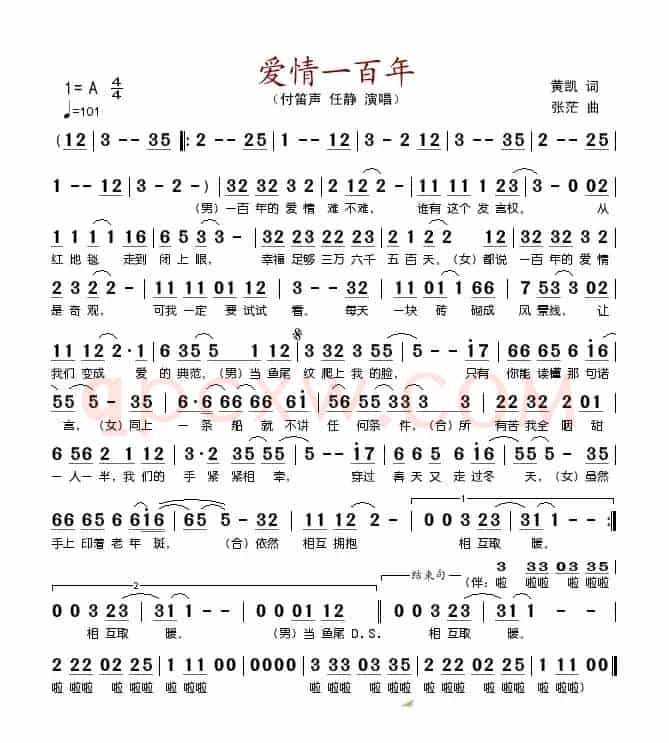 爱情一百年
1= A 4/4
♩=101
（付笛声 任静 演唱）
黄凯 词
张茫 曲
( 12 | 3 - - 35 ‖: 2 - - 25 | 1 - - 12 | 3 - - 35 | 2 - - 25 |
1 - - 12 | 3 - 2 - ) | 32 32 32 32 | 2 12 2 - | 11 11 1 23 | 3 - 0 02 |
（男）一百 年的 爱 情 难 不难， 谁有 这个 发 言权， 从
1 1 1 1 16 | 6 5 3 3 - | 32 23 22 23 | 5 2 1 2 2 - | 32 32 32 32 |
红 地 毯 走到 闭 上 眼， 幸福 足够 三万 六千 五 百天，（女）都说 一百 年的 爱情
2 3 2 3 - | 11 11 01 12 | 3 - - 02 | 11 01 1 66 | 7 53 5 - 03 |
是 奇 观， 可我 一定 要 试试 看， 每天 一块 砖 砌成 风 景线， 让
11 12 2·1 | 6 35 5 1 12 | 3 32 3 35 | 5 - - 17 | 66 65 6 67 |
我们 变成 爱 的 典范，（男）当 鱼尾 纹 爬上 我 的脸， 只有 你能 读懂 那 句诺
55 5 - 35 | 6·6 66 66 6i | 56 5 5 35 | 22 32 2 01 |
言，（女）同上 一 条 船 就 不讲 任 何条 件，（合）所 有苦 我全 咽 甜
6 56 2 2 12 | 3·5 55 5 23 | 5 - - 17 | 66 65 6 i7 | 5 5 - 35 |
一人 一 半，我 们的 手 紧 紧相 牵， 穿过 春天 又 走过 冬 天，（女）虽然
66 65 6i6 | 65 5 - 32 | 11 11 12 2 - | 0 0 3 23 | 31 1 - - :‖
手上 印着 老 年 斑， （合）依然 相互 拥抱 相 互取 暖，
1
结束句
3 33 03 35
（伴：啦 啦啦 啦啦 啦啦
2
0 0 3 23 | 31 1 - - | 0 0 1 12 | 0 0 3 23 | 31 1 - - |
相 互取 暖， （男）当 鱼尾 D.S. 相 互取 暖，
2 22 02 25 | 1 11 00 12 | 0000 | 3 33 03 35 | 2 22 02 25 | 1 11 00 ‖
啦 啦啦 啦啦 啦啦 啦啦啦 啦啦 啦 啦啦 啦啦 啦 啦啦 啦啦 啦 啦啦）